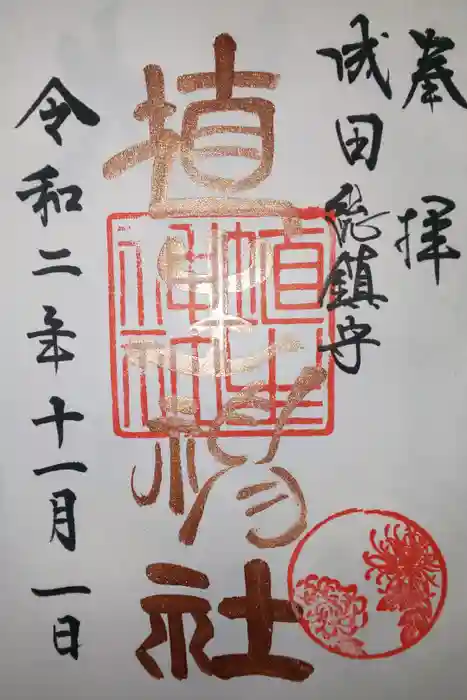 奉拝
成田総鎮守
埴生神社
埴生
神社
令和二年十一月一日